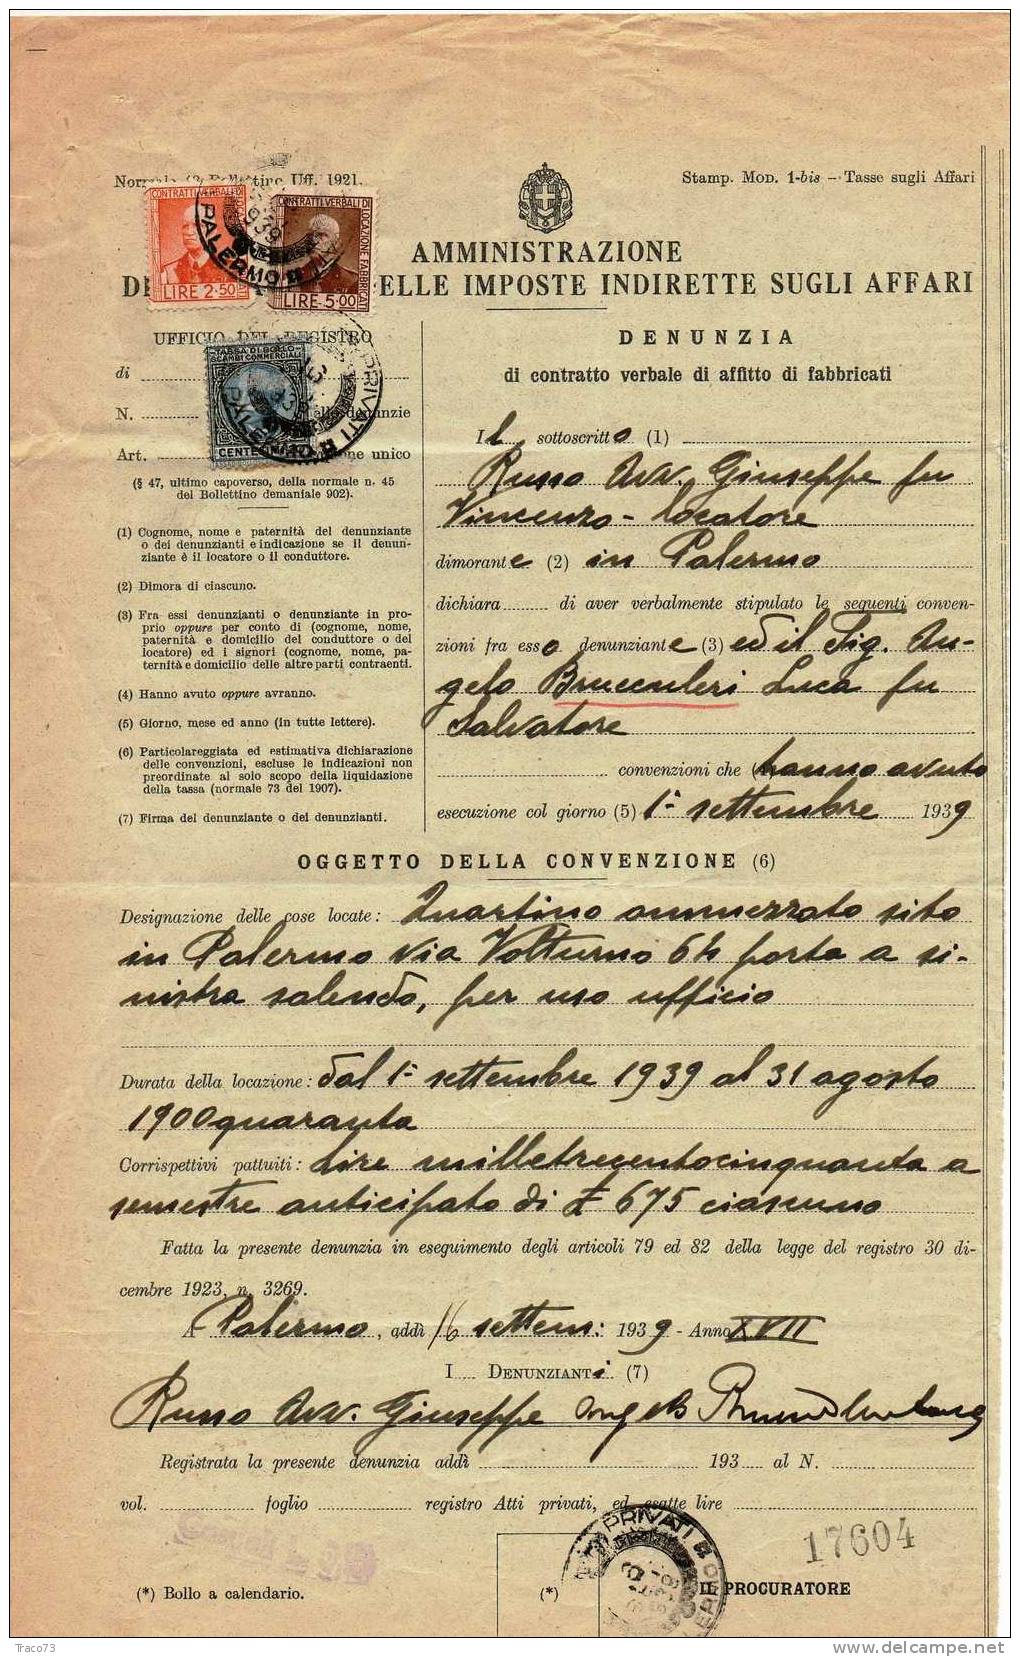 Uff. 1921.
Stamp. Mod. 1-bis — Tasse sugli Affari
CONTRATTI VERBALI DI
LIRE 2·50
CONTRATTI VERBALI DI LOCAZIONE FABBRICATI
LIRE 5·00
PALERMO
AMMINISTRAZIONE
ELLE IMPOSTE INDIRETTE SUGLI AFFARI
UFFICIO DEL REGISTRO
di
TASSA DI BOLLO
SCAMBI COMMERCIALI
PALERMO
PRIVATI
N. denunzie
Art. unico
(§ 47, ultimo capoverso, della normale n. 45
del Bollettino demaniale 902).
(1) Cognome, nome e paternità del denunziante
o dei denunzianti e indicazione se il denun-
ziante è il locatore o il conduttore.
(2) Dimora di ciascuno.
(3) Fra essi denunzianti o denunziante in pro-
prio oppure per conto di (cognome, nome,
paternità e domicilio del conduttore o del
locatore) ed i signori (cognome, nome, pa-
ternità e domicilio delle altre parti contraenti.
(4) Hanno avuto oppure avranno.
(5) Giorno, mese ed anno (in tutte lettere).
(6) Particolareggiata ed estimativa dichiarazione
delle convenzioni, escluse le indicazioni non
preordinate al solo scopo della liquidazione
della tassa (normale 73 del 1907).
(7) Firma del denunziante o dei denunzianti.
DENUNZIA
di contratto verbale di affitto di fabbricati
Il sottoscritto (1)
Russo Avv. Giuseppe fu
Vincenzo - locatore
dimorante (2) in Palermo
dichiara di aver verbalmente stipulato le seguenti conven-
zioni fra esso denunziante (3) ed il Sig. An-
gelo Bruccoleri Luca fu
Salvatore
convenzioni che hanno avuto
esecuzione col giorno (5) 1° settembre 1939
OGGETTO DELLA CONVENZIONE (6)
Designazione delle cose locate: Quartino ammezzato sito
in Palermo via Volturno 64 porta a si-
nistra salendo, per uso ufficio
Durata della locazione: dal 1° settembre 1939 al 31 agosto
1900quaranta
Corrispettivi pattuiti: Lire milletrecentocinquanta a
semestre anticipato di £ 675 ciascuno
Fatta la presente denunzia in eseguimento degli articoli 79 ed 82 della legge del registro 30 di-
cembre 1923, n. 3269.
A Palermo, addì 16 settem: 1939 - Anno XVII
I Denunzianti (7)
Russo Avv. Giuseppe Angelo
Registrata la presente denunzia addì 193 al N.
vol. foglio registro Atti privati, ed esatte lire
PRIVATI
17604
(*) Bollo a calendario.
(*)
IL PROCURATORE
Traco73
www.delcampe.net